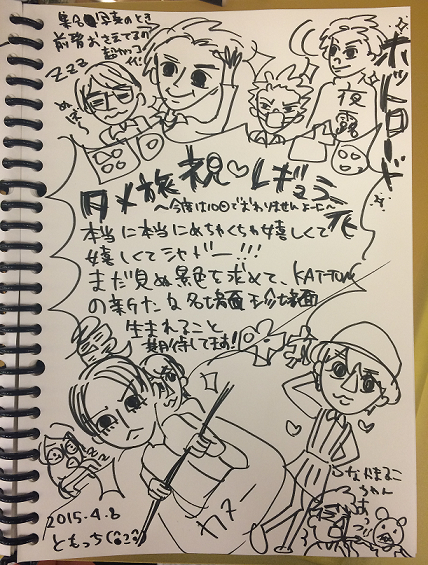 集合写真のとき
前髪おさえてるの
超かっこ
イイ
zzz
ホットロード
夜露
タメ旅祝♡レギュラー
〜今度は10回でおわりませんよーに〜
本当に本当にめちゃくちゃ嬉しくて
嬉しくてシャドー!!!
まだ見ぬ景色を求めて、KAT-TUN
の新たな名場面珍場面
生まれること
期待してます!!
カヌー
なかまるこ
ちゃん
2015.4.8
ともっち